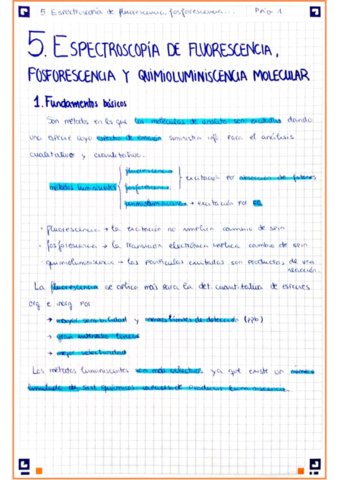 5. Espectroscopía de fluorescencia, fosforescencia... Pág 1
5. ESPECTROSCOPÍA DE FLUORESCENCIA,
FOSFORESCENCIA Y QUIMIOLUMINISCENCIA MOLECULAR
1. Fundamentos básicos
Son métodos en los que las moléculas de analito son excitadas dando
una especie cuyo espectro de emisión suministra inf. para el análisis
cualitativo y cuantitativo.
fluorescencia
métodos luminiscentes fosforescencia excitación por absorción de fotones
quimioluminiscencia → excitación por
• fluorescencia → la excitación no implica cambio de spin
• fosforescencia → la transición electrónica implica cambio de spin
• quimioluminiscencia → las partículas excitadas son productos de una
reacción.
La fluorescencia se aplica más para la det. cuantitativa de especies
org e inorg por
→ mayor sensibilidad y menores límites de detección (ppb)
→ gran intervalo lineal
→ mayor selectividad
Los métodos luminiscentes son más selectivos ya que existe un número
limitado de sust químicas capaces de producir luminiscencia.